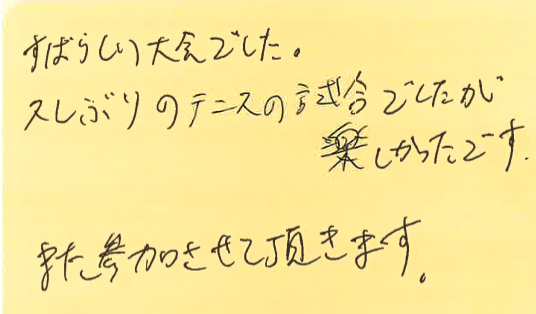 すばらしい大会でした。
久しぶりのテニスの試合でしたが
楽しかったです.
また参加させて頂きます。